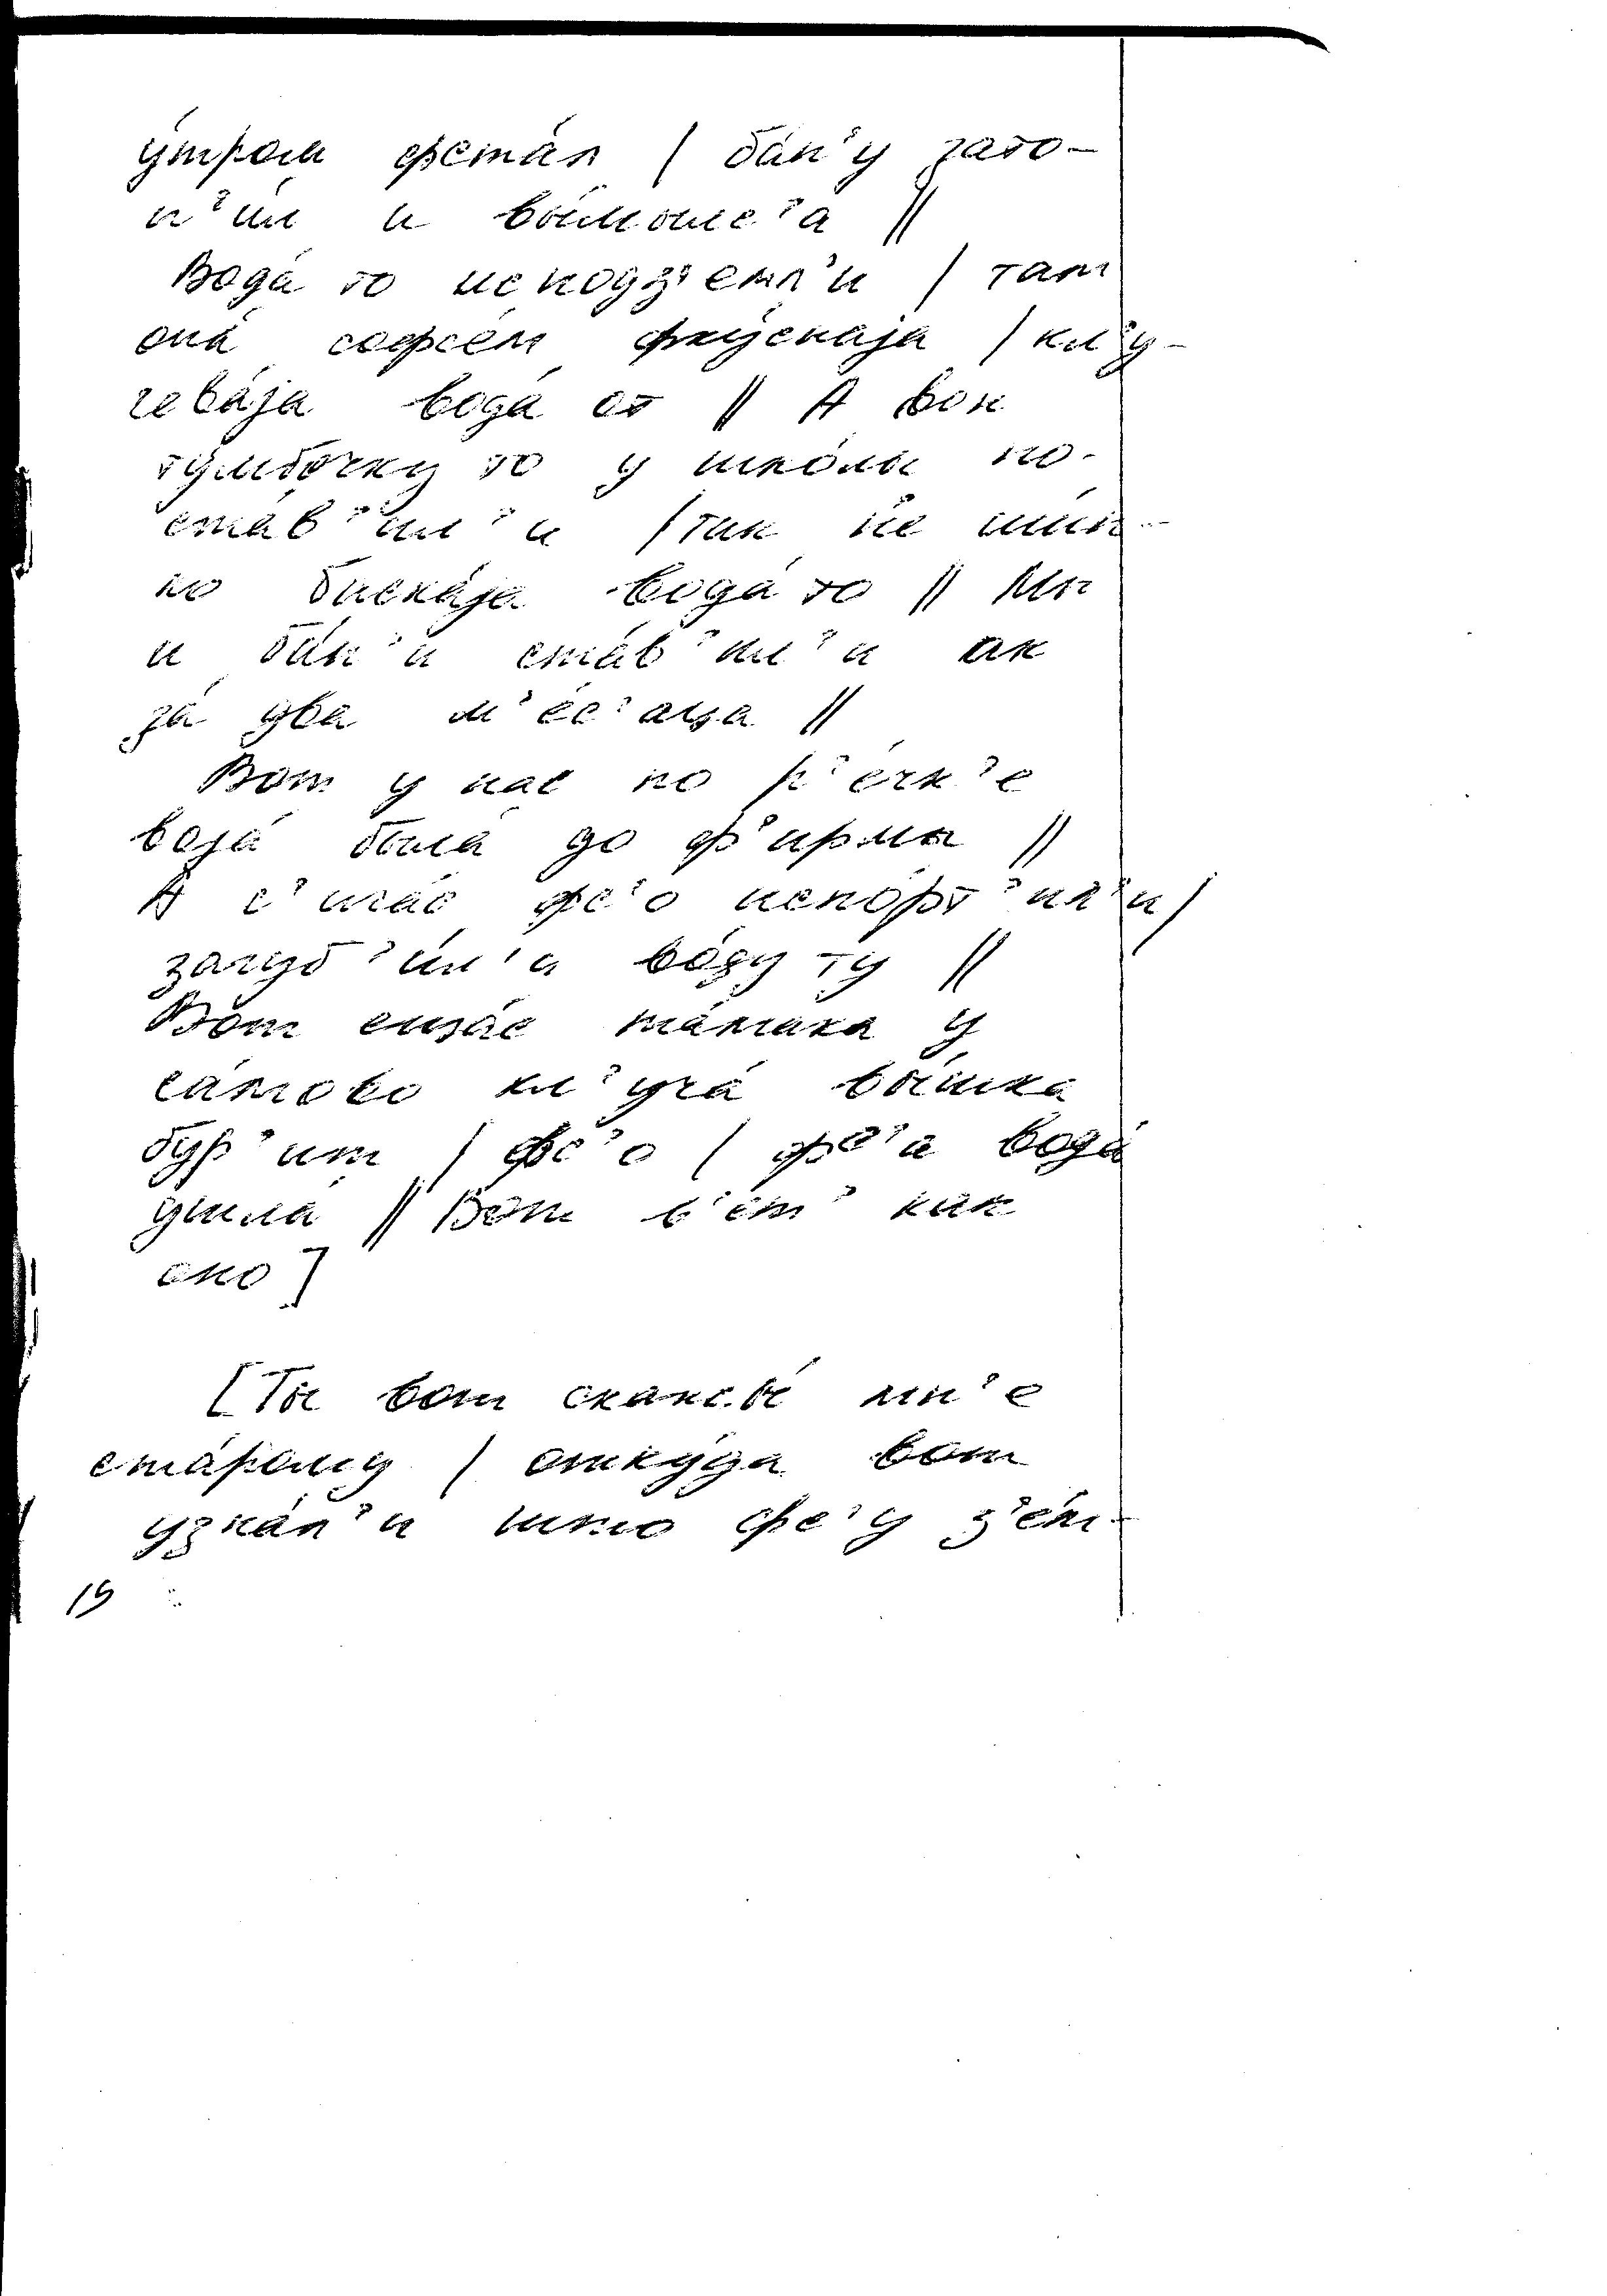 у́тром фстáл / бáн'у зато-
п'ил и вы́мылс'а //
Водá то исподз'емл'и / там
онá софсем фку́снаја / кл'у-
чевáја водá от // А вон
ту́мбочку то у шкóлы по-
стáв'ил'и / так не шып-
ко бискája водá то // Мы
и бáн'и стáв'ил'и ак
зá два м'éс'аца //
Вот у нас по р'éчк'е
водá былá до ф'ирмы //
А с'ичáс фс'о испóрт'ил'и /
загуб'и́л'и вóду ту //
Вот сичáс тáмака у
сáмово кл'учá вы́шка
бур'ит / фс'о / фс'а водá
ушлá // Вот в'ет' как
оно]
[Ты вот скажы́ мн'е
стáрому / отку́да вот
узнáл'и што фс'у з'éм-
19